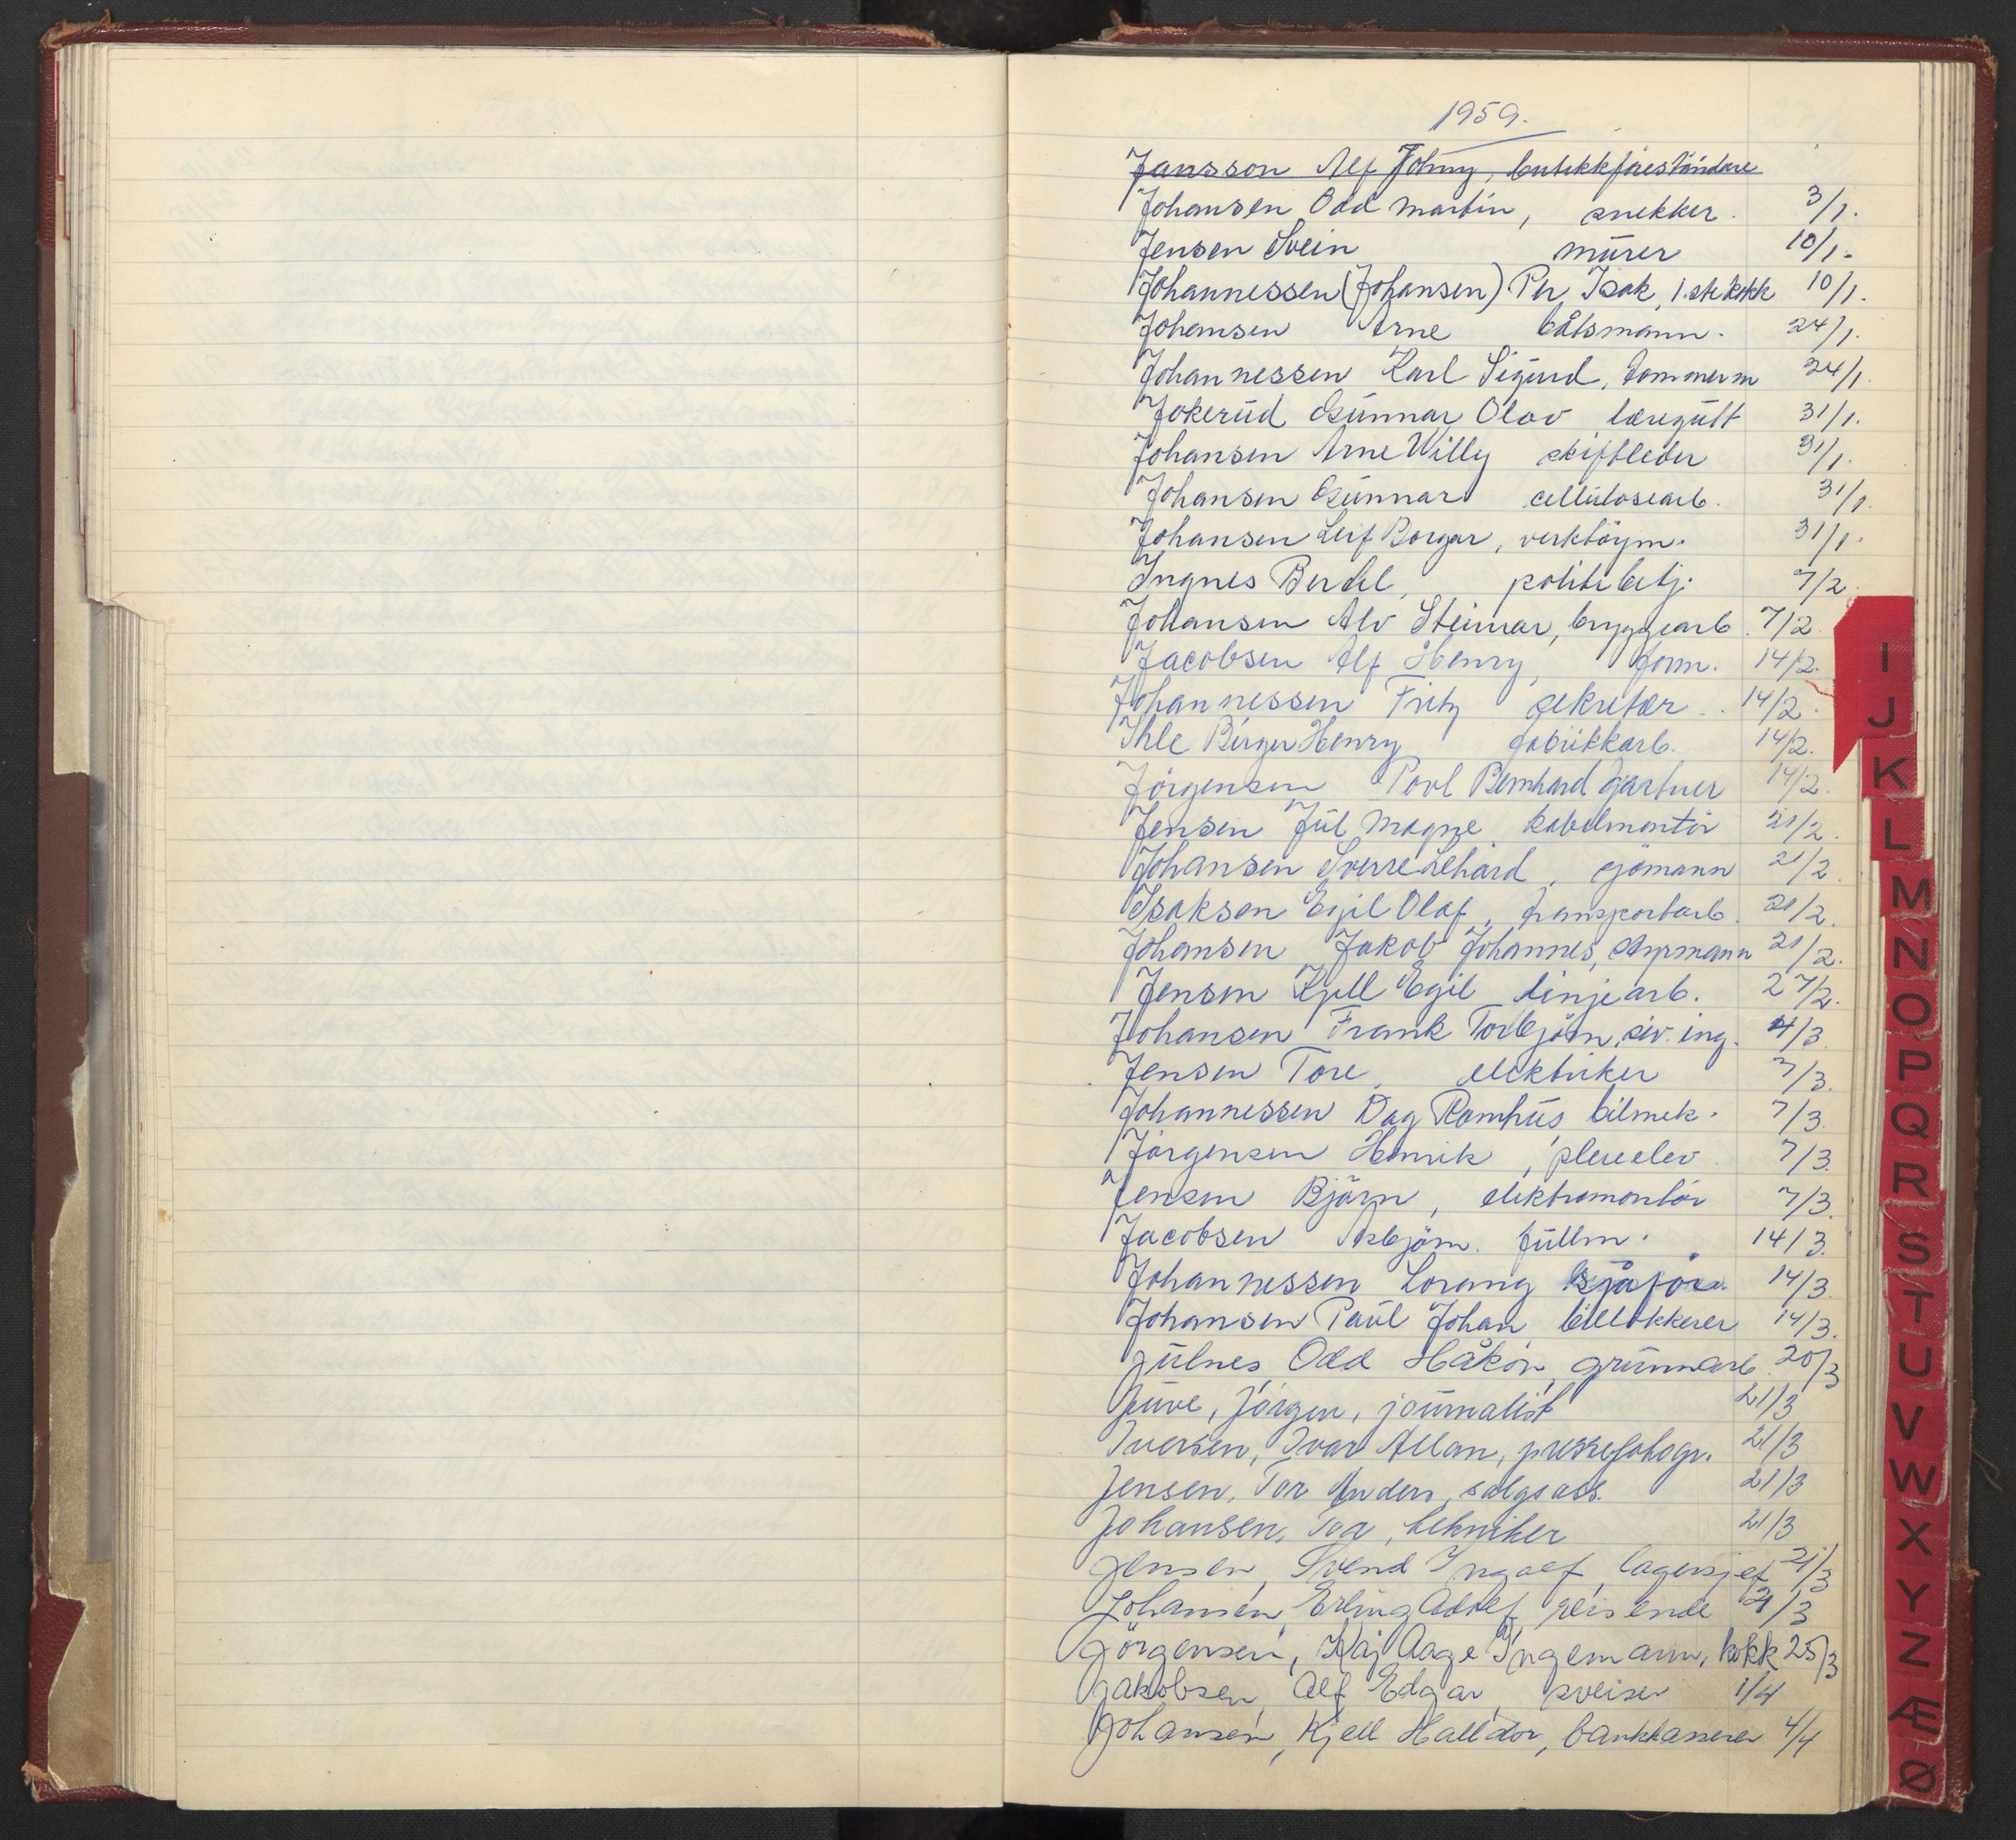 1959.
Jansson Alf Johny, butikkföreståndare
Johansen Odd Martin, snekker. 3/1.
Jensen Svein murer 10/1.
Johannessen (Johansen) Per Isak, 1.ste kokk 10/1.
Johansen Arne båtsmann. 24/1.
Johannessen Karl Sigurd, tømmerm 24/1.
Jokerud Gunnar Olav læregutt 31/1.
Johansen Arne Willy skiftleder 31/1.
Johansen Gunnar cellulosearb. 31/1
Johansen Leif Borgar, verktöym. 31/1.
Ingnes Bendel, politibetj. 7/2
Johansen Alv Steinar, bryggearb. 7/2.
Jacobsen Alf Henry, form. 14/2.
Johannessen Fritz sekretær. 14/2.
Ihle Birger Henry fabrikkarb. 14/2.
Jörgensen Povl Bernhard Gartner 14/2.
Jensen Jul Magne kabelmontör 21/2.
Johansen Sverre Lehard, sjömann 21/2.
Isaksen Egil Olaf, transportarb. 21/2.
Johansen Jakob Johannes, styrmann 21/2.
Jensen Kjell Egil linjearb. 27/2.
Johansen Frank Torbjörn, siv. ing. 4/3.
Jensen Tore, elektriker 7/3.
Johannessen Dag Romhus bilmek. 7/3.
Jörgensen Henrik, pleieelev 7/3.
Jensen Björn, elektromontör 7/3.
Jacobsen Asbjörn. fullm. 14/3.
Johannessen Lorang sjåför. 14/3.
Johansen Paul Johan, billakkerer 14/3.
Julnes, Odd Håkon, grunnarb. 20/3
Juve, Jörgen, journalist 21/3
Iversen, Ivar Allan, pressefotogr. 21/3
Jensen, Tor Anders, salgsass. 21/3
Johansen, Tor, tekniker 21/3
Jensen, Svend Ingolf, lagersjef 21/3
Johansen, Erling Adolf, reisende 21/3
Jörgensen, Kaj Aage Ingemann, kokk 25/3
Jakobsen, Alf Edgar, sveiser 1/4
Johansen, Kjell Halldor, bankkasserer 4/4
I
J
K
L
M
N
O
P
Q
R
S
T
U
V
W
X
Y
Z
Æ
Ø